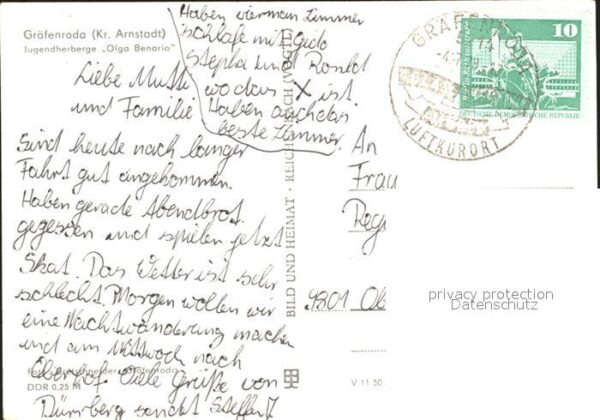 Gräfenroda (Kr. Arnstadt)
Jugendherberge „Olga Benario"
Haben viermann Zimmer
schlafe mit Guido
Stephan und Ronald
wo das X ist
Haben auch das
beste Zimmer.
Liebe Mutti
und Familie
Sind heute nach langer
Fahrt gut angekommen.
Haben gerade Abendbrot
gegessen und spielen jetzt
Skat. Das Wetter ist sehr
schlecht. Morgen wollen wir
eine Nachtwanderung machen
und am Mittwoch nach
Oberhof. Viele Grüße von
Steffen
DDR 0,25 M
BILD UND HEIMAT · REICHENBACH (VOGTL)
V 11 50
GRÄFENRODA
LUFTKURORT
10
DEUTSCHE DEMOKRATISCHE REPUBLIK
An
Frau
Reg
9301 Ob
privacy protection
Datenschutz